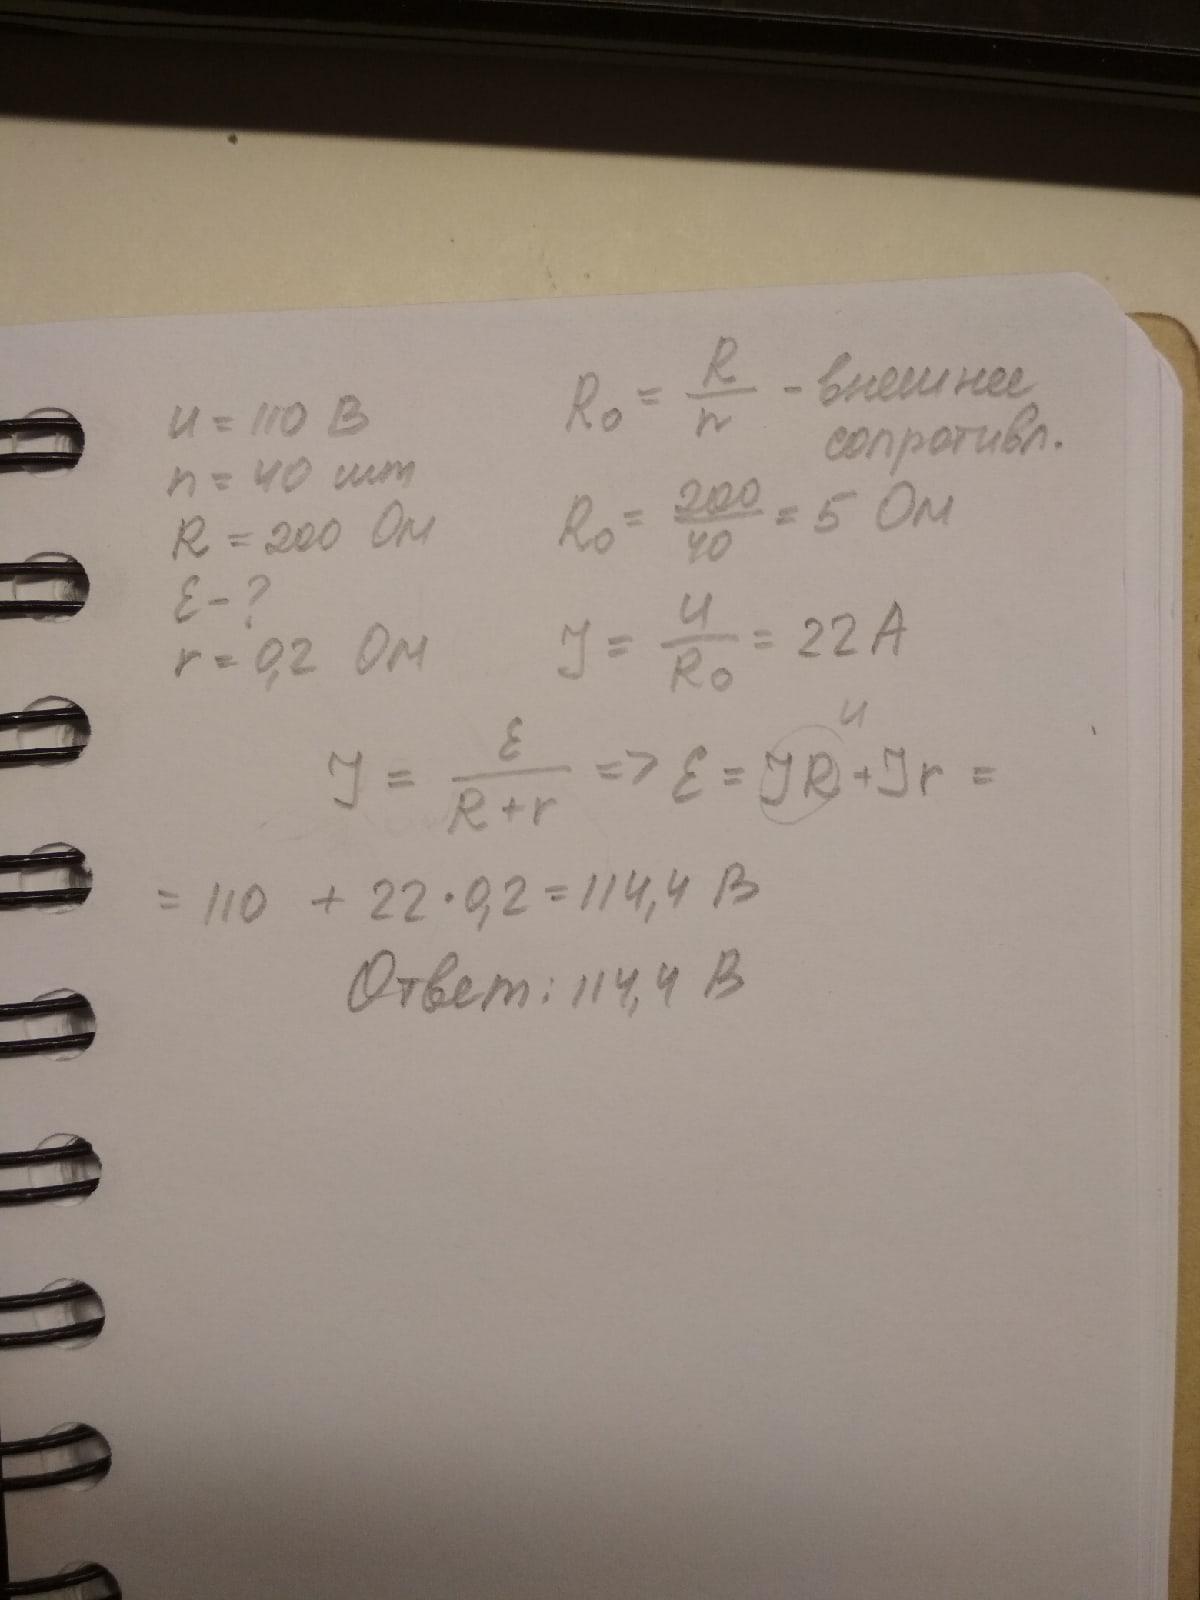 U = 110 В
n = 40 шт
R = 200 Ом
ε - ?
r = 0,2 Ом
R₀ = R/n - внешнее
сопротивл.
R₀ = 200/40 = 5 Ом
J = U/R₀ = 22 А
U
J = ε/(R + r) => ε = JR + Jr =
= 110 + 22 · 0,2 = 114,4 В
Ответ: 114,4 В